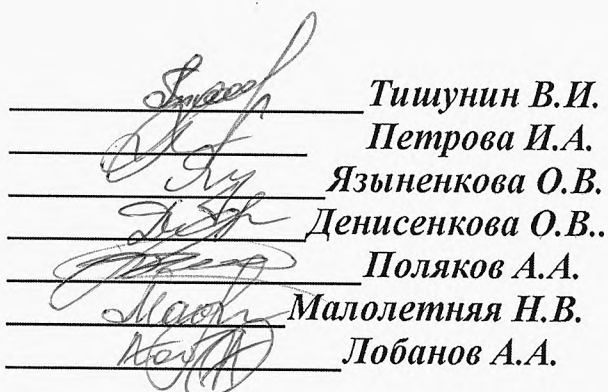 Тишунин В.И.
Петрова И.А.
Языненкова О.В.
Денисенкова О.В..
Поляков А.А.
Малолетняя Н.В.
Лобанов А.А.